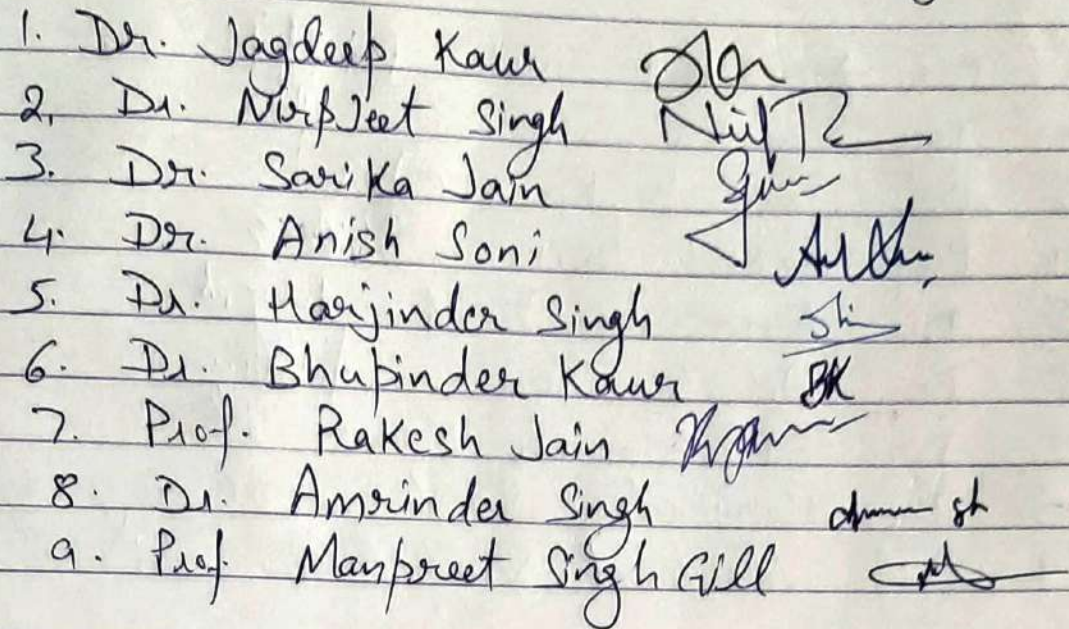 1. Dr. Jagdeep Kaur
2. Dr. NirpJeet Singh
3. Dr. Sarika Jain
4. Dr. Anish Soni
5. Dr. Harjinder Singh
6. Dr. Bhupinder Kaur BK
7. Prof. Rakesh Jain
8. Dr. Amrinder Singh
9. Prof. Manpreet Singh Gill